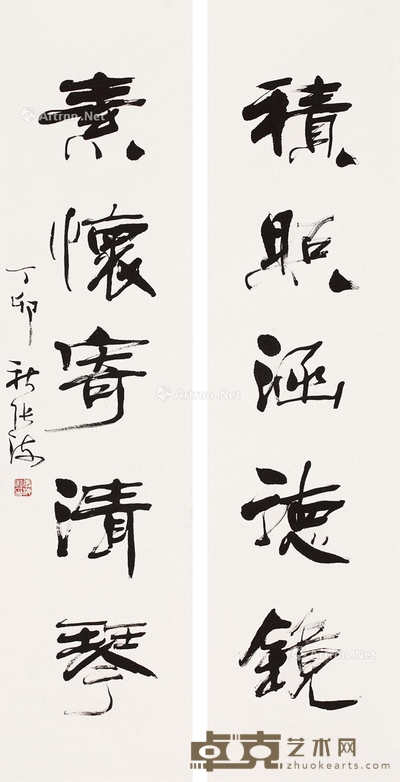 積照涵德鏡
素懷寄清琴
丁卯秋張海
Artron.Net
Artron.Net
Artron.Net
Artron.Net
卓克艺术网
zhuokearts.com